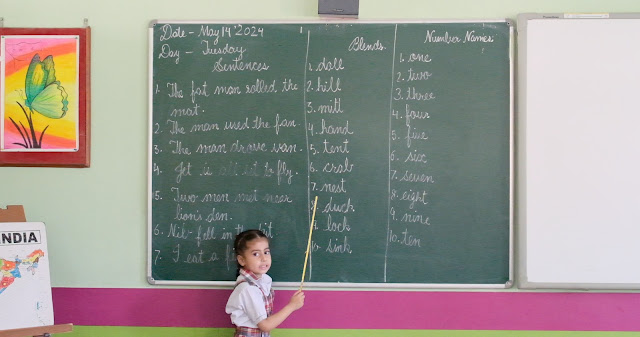 Date - May 14 2024
Day - Tuesday
Sentences
1. The fat man rolled the
mat.
2. The man used the fan.
3. The man drove van.
4. Jet is all set to fly.
5. Two men met near
lion's den.
6. Nik fell in the pit
7. I eat a
Blends
1. dale
2. hill
3. mitt
4. hand
5. tent
6. crab
7. nest
8. duck
9. lock
10. sink
Number Names
1. one
2. two
3. three
4. four
5. five
6. six
7. seven
8. eight
9. nine
10. ten
INDIA